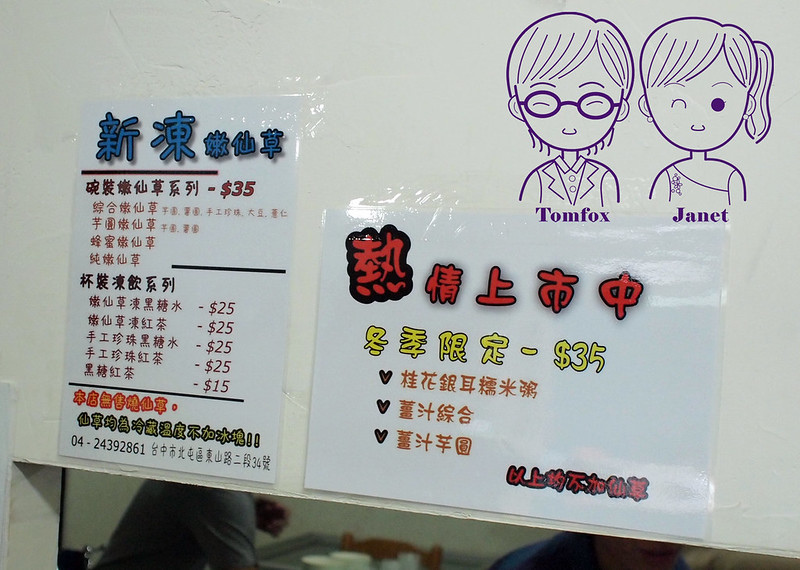 新凍 嫩仙草
碗裝嫩仙草系列 - $35
綜合嫩仙草 芋圓, 薯圓, 手工珍珠, 大豆, 薏仁
芋圓嫩仙草 芋圓, 薯圓
蜂蜜嫩仙草
純嫩仙草
杯裝凍飲系列
嫩仙草凍黑糖水 - $25
嫩仙草凍紅茶 - $25
手工珍珠黑糖水 - $25
手工珍珠紅茶 - $25
黑糖紅茶 - $15
本店無售燒仙草。
仙草均為冷藏溫度不加冰塊!!
04 - 24392861 台中市北屯區東山路二段34號
Tomfox Janet
熱情上市中
冬季限定 - $35
v 桂花銀耳糯米粥
v 薑汁綜合
v 薑汁芋圓
以上均不加仙草